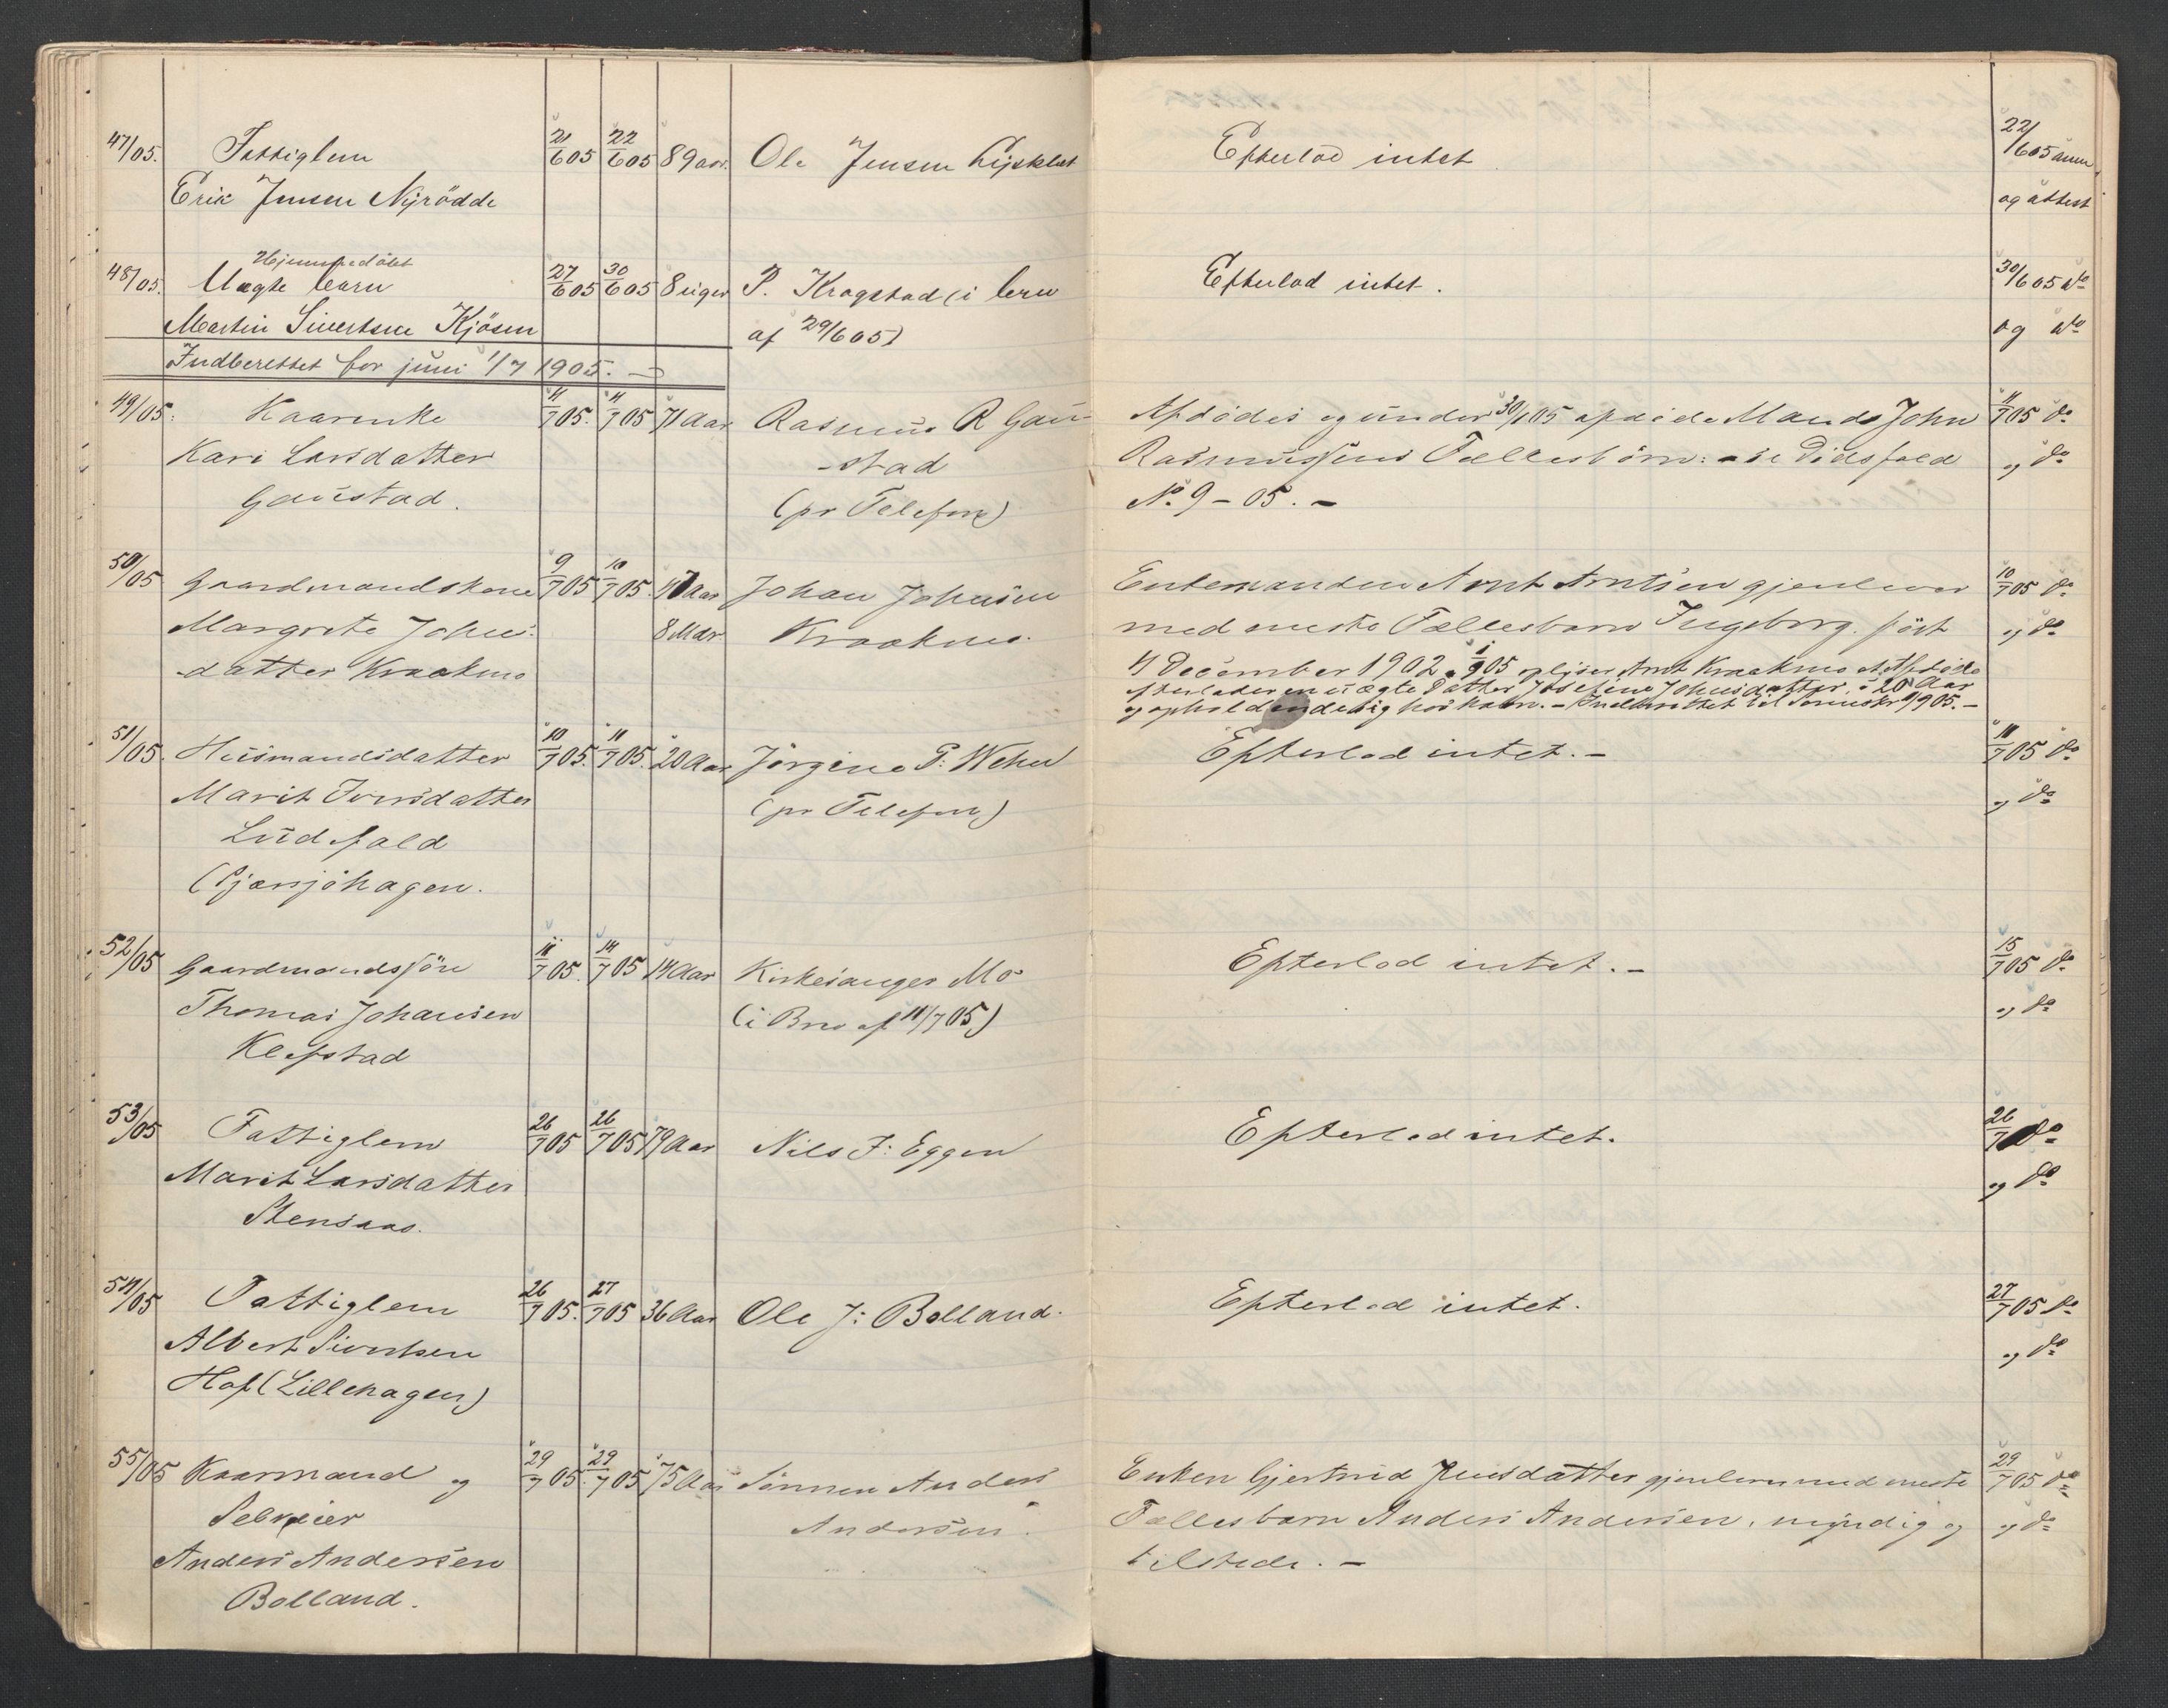 47/05. Fattiglem 21/6 05 22/6 05 89 aar. Ole Jensen Efterlod intet 22/6 05 anm
Erik Jensen Nyrödde og attest
Hjemmedöbt
48/05. Uægte barn 27/6 05 30/6 05 8 uger P. Krogstad (i brev Efterlod intet. 30/6 05 do
Martin Sivertsen Kjösen af 29/6 05) og do
Indberettet for juni 1/7 1905. —
49/05. Kaarenke 11/7 05. 11/7 05 71 Aar Rasmus R Gau- Afdödes og under 30/1 05 afdöde Mands John 11/7 05 do
Kari Larsdatter -stad Rasmussens Fællesbörn: se Dödsfald og do
Gaustad. (pr Telefon) No. 9 - 05. -
50/05 Gaardmandskone 9/7 05 10/7 05. 47 Aar Johan Johnsen Enkemanden Arnt Arntsen gjenlever 10/7 05 do
Margrete John- 8 Mdr Kraakmo. med eneste Fællesbarn Ingeborg. född og do
-datter Kraakmo 4 December 1902. 1/9 05 oplyser Arnt Kraakmo at Afdöde
efterlader en uægte Datter Josefine Johnsdatter, 20 Aar
og opholdende sig hos ham. - Indberettet til Sorenskr 1/9 05. -
51/05. Husmandsdatter 10/7 05. 11/7 05. 20 Aar Jörgine P. Wehn Efterlod intet. - 11/7 05 do
Marit Iversdatter (pr Telefon) og do
Ludsfald
(Sjærsjöhagen.
52/05 Gaardmandssön 11/7 05. 14/7 05 14 Aar Kirkesanger Mo Efterlod intet. - 15/7 05 do
Thomas Johansen (i Brev af 11/7 05) og do
Klefstad
53/05 Fattiglem 26/7 05 26/7 05 79 Aar Nils J. Eggen Efterlod intet. 26/7 do
Marit Larsdatter og do
Stensaas.
54/05 Fattiglem 26/7 05. 27/7 05 36 Aar Ole J. Bolland. Efterlod intet. 27/7 05 do
Albert Sivertsen og do
Hof (Lillehagen)
55/05 Kaarmand og 29/7 05. 29/7 05 75 Aar Sönnen Anders Enken Gjertrud Jensdatter gjenlever med eneste 29/7 05 do
Selveier Andersen. Fællesbarn Anders Andersen, myndig og og do
Anders Andersen tilstede. -
Bolland.